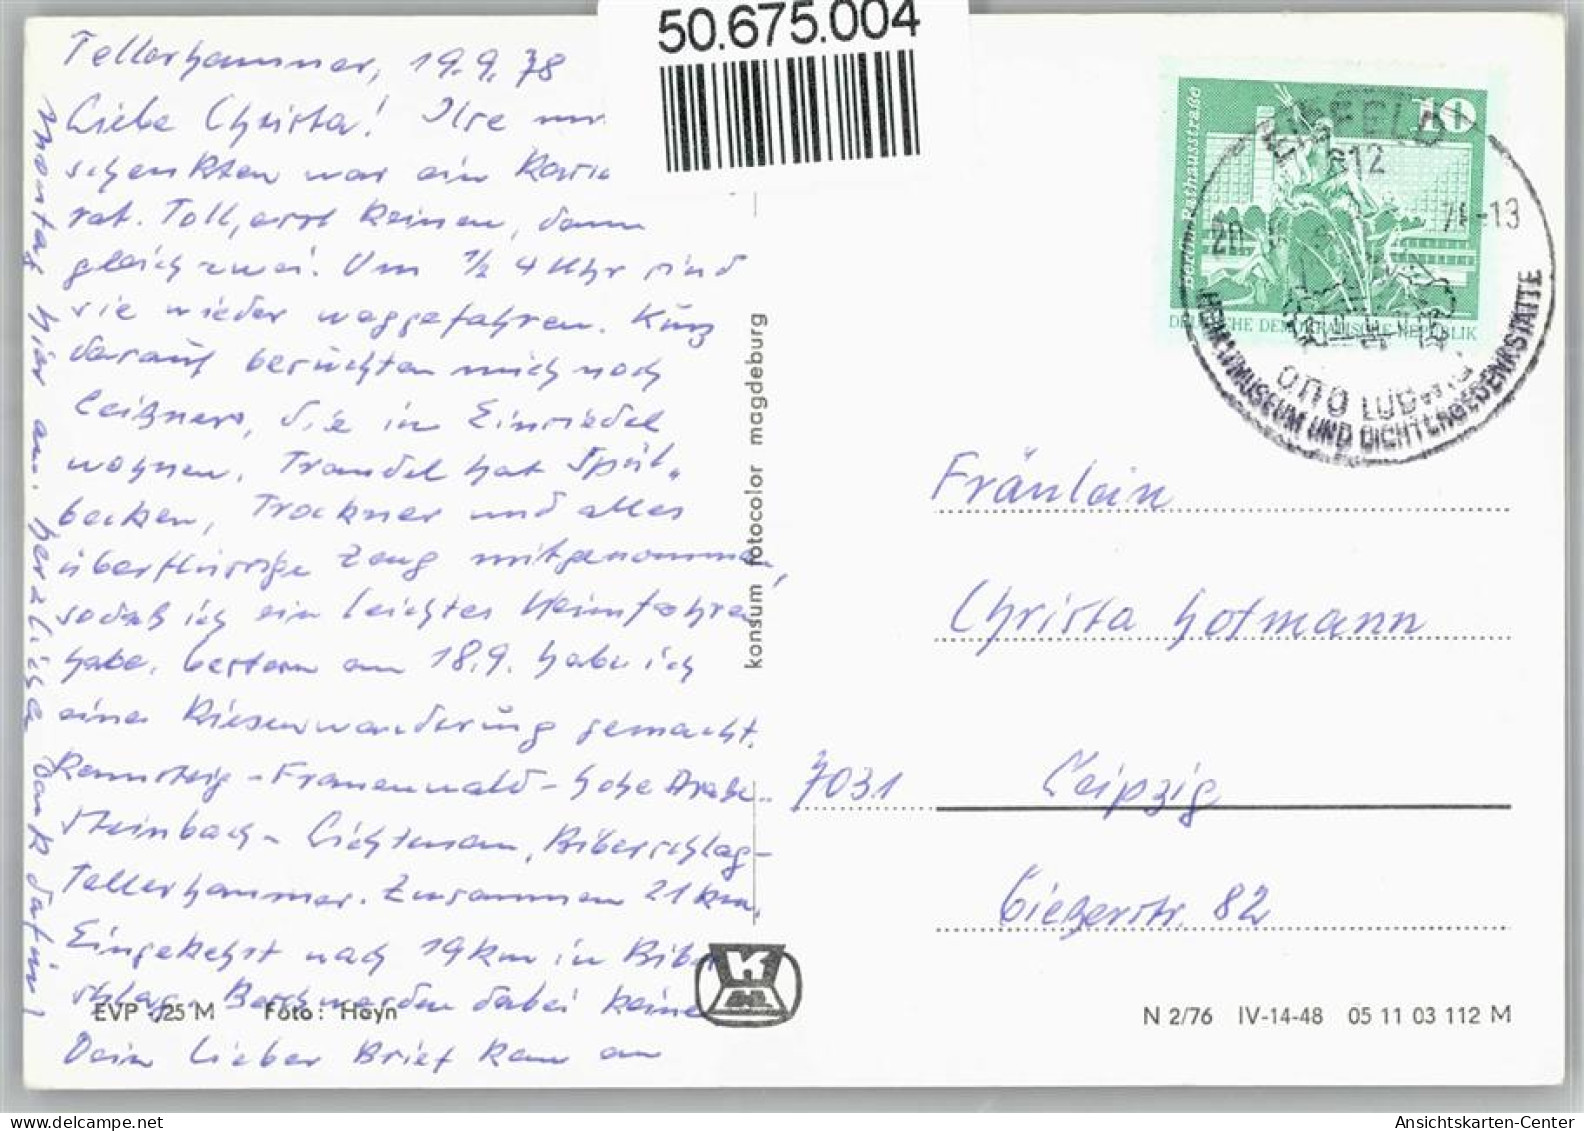 50.675.004
Tellerhammer, 19.9.78
Liebe Christa! Ilse und
schenkten war ein
rat. Toll, erst keinen, dann
gleich zwei. Um 1/2 4 Uhr sind
sie wieder weggefahren. Kurz
darauf besuchten mich noch
Leißners, die in Einsiedel
wohnen. Traudel hat Spül-
becken, Trockner und alles
überflüssige Zeug mitgenommen,
sodaß ich ein leichtes Heimfahren
habe. Gestern am 18.9. habe ich
eine Riesenwanderung gemacht.
Rennsteig - Frauenwald - hohe
Steinbach - Lichtenau, Biberschlag -
Tellerhammer. Zusammen 21 km.
Eingekehrt nach 19 km in Biber
schlag. Beschwerden dabei keine
Dein lieber Brief kam am
Montag hier an. Herzlichen Dank dafür!
EVP -/25 M Foto: Hayn
konsum fotocolor magdeburg
10
Berlin, Rathausstraße
DEUTSCHE DEMOKRATISCHE REPUBLIK
EISFELD 1
612
20. -13
OTTO LUDWIG
HEIMATMUSEUM UND DICHTERGEDENKSTÄTTE
Fräulein
Christa Hofmann
7031 Leipzig
Gießerstr. 82
N 2/76 IV-14-48 05 11 03 112 M
Ansichtskarten-Center
delcampe.net